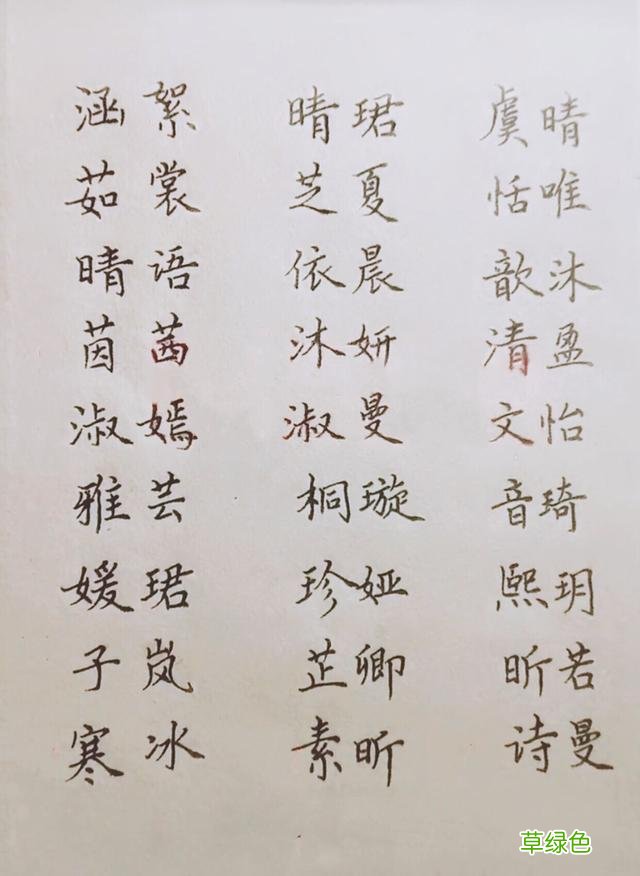 涵絮 晴珺 虞晴
茹裳 芝夏 恬唯
晴语 依晨 歆沐
茵茜 沐妍 清盈
淑嫣 淑曼 文怡
雅芸 桐璇 音琦
媛珺 珍娅 熙玥
子岚 芷卿 昕若
寒冰 素昕 诗曼
草绿色